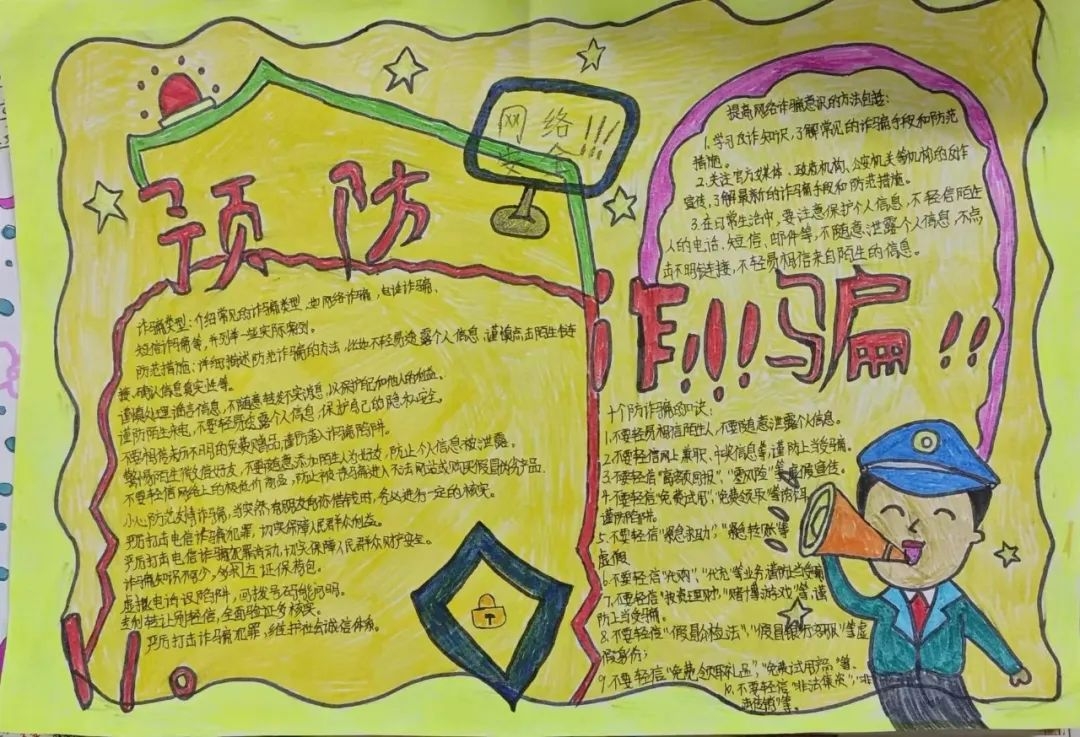 预防
网络
安全!!!
诈骗类型：介绍常见的诈骗类型，如网络诈骗，电话诈骗、
短信诈骗等，并列举一些实际案例。
防范措施：详细描述防范诈骗的方法，比如不轻易透露个人信息，谨慎点击陌生链
接、确认信息真实性等。
谨慎处理谣言信息，不随意转发不实消息，以保护自己和他人的利益。
谨防陌生来电，不要轻易透露个人信息，保护自己的隐私安全。
不要相信来历不明的免费赠品，谨防落入诈骗陷阱。
警惕陌生微信好友，不要随意添加陌生人为好友，防止个人信息被泄露。
不要轻信网络上的极低价商品，防止被诱骗进入不法网站或购买假冒伪劣产品。
小心防范友情诈骗，当突然有朋友向你借钱时，务必进行一定的核实。
严厉打击电信诈骗犯罪，切实保障人民群众利益。
严厉打击电信诈骗犯罪活动，切实保障人民群众财产安全。
诈骗知识不可少，
虚拟电话设陷阱，回拨号码能问明。
轻信，全面验证多核实。
严厉打击诈骗犯罪，维护社会诚信体系。
提高网络诈骗意识的方法包括：
1.学习反诈知识，了解常见的诈骗手段和防范
措施。
2.关注官方媒体、政府机构、公安机关等机构的反诈
宣传，了解最新的诈骗手段和防范措施。
3.在日常生活中，要注意保护个人信息，不轻信陌生
人的电话、短信、邮件等，不随意泄露个人信息，不点
击不明链接，不轻易相信来自陌生的信息。
诈!!!骗!!
十个防诈骗的知识：
1.不要轻易相信陌生人，不要随意泄露个人信息。
2.不要轻信网上兼职、中奖信息等，谨防上当受骗。
3.不要轻信“高额回报”、“零风险”等虚假宣传。
4.不要轻信“免费试用”、“免费领取”等诱饵，
谨防陷阱。
5.不要轻信“紧急求助”、“紧急转账”等
虚假
6.不要轻信“代购”、“代充”等业务，谨防上当受骗
7.不要轻信“投资理财”、“赌博游戏”等，谨
防上当受骗。
8.不要轻信“假冒公检法”、“假冒银行客服”等虚
假身份；
9.不要轻信“免费领取礼品”、“免费试用产品”等、
10.不要轻信“非法集资”、“非
法传销”等。